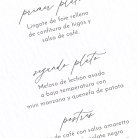 primer plato
Lingote de foie relleno
de confitura de higos y
salsa de café.
segundo plato
Meloso de lechón asado
a baja temperatura con
mini manzana y quenefa de patata
postres
de café con salsa amaretto